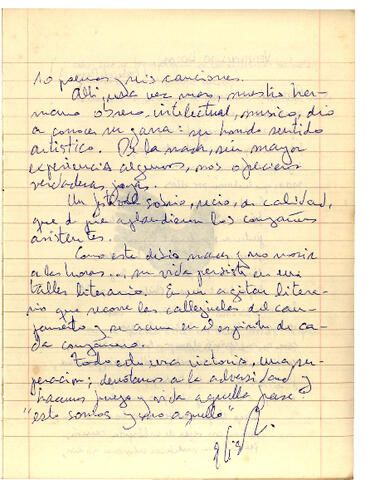 10 poemas y mis canciones.
Allí, una vez más, nuestro her-
mano obrero, intelectual, musico, dio
a conocer su gama: su hondo sentido
artístico. De la nada, sin mayor
experiencia algunos, nos ofrecieron
verdaderas joyas.
Un jornal sobrio, recio, de calidad,
que de pie aplaudieron los compañeros
asistentes.
Como este debio nacer y no morir
a las horas..., su vida persiste en un
taller literario. En un agitar litera-
rio que recorre las callejuelas del cam-
pamento y se acuna en el espiritu de ca-
da compañero.
Todo esto una victoria, una su-
peracion; derrotamos a la adversidad y
hacemos juego y vida aquella frase:
"esto somos y no aquello"